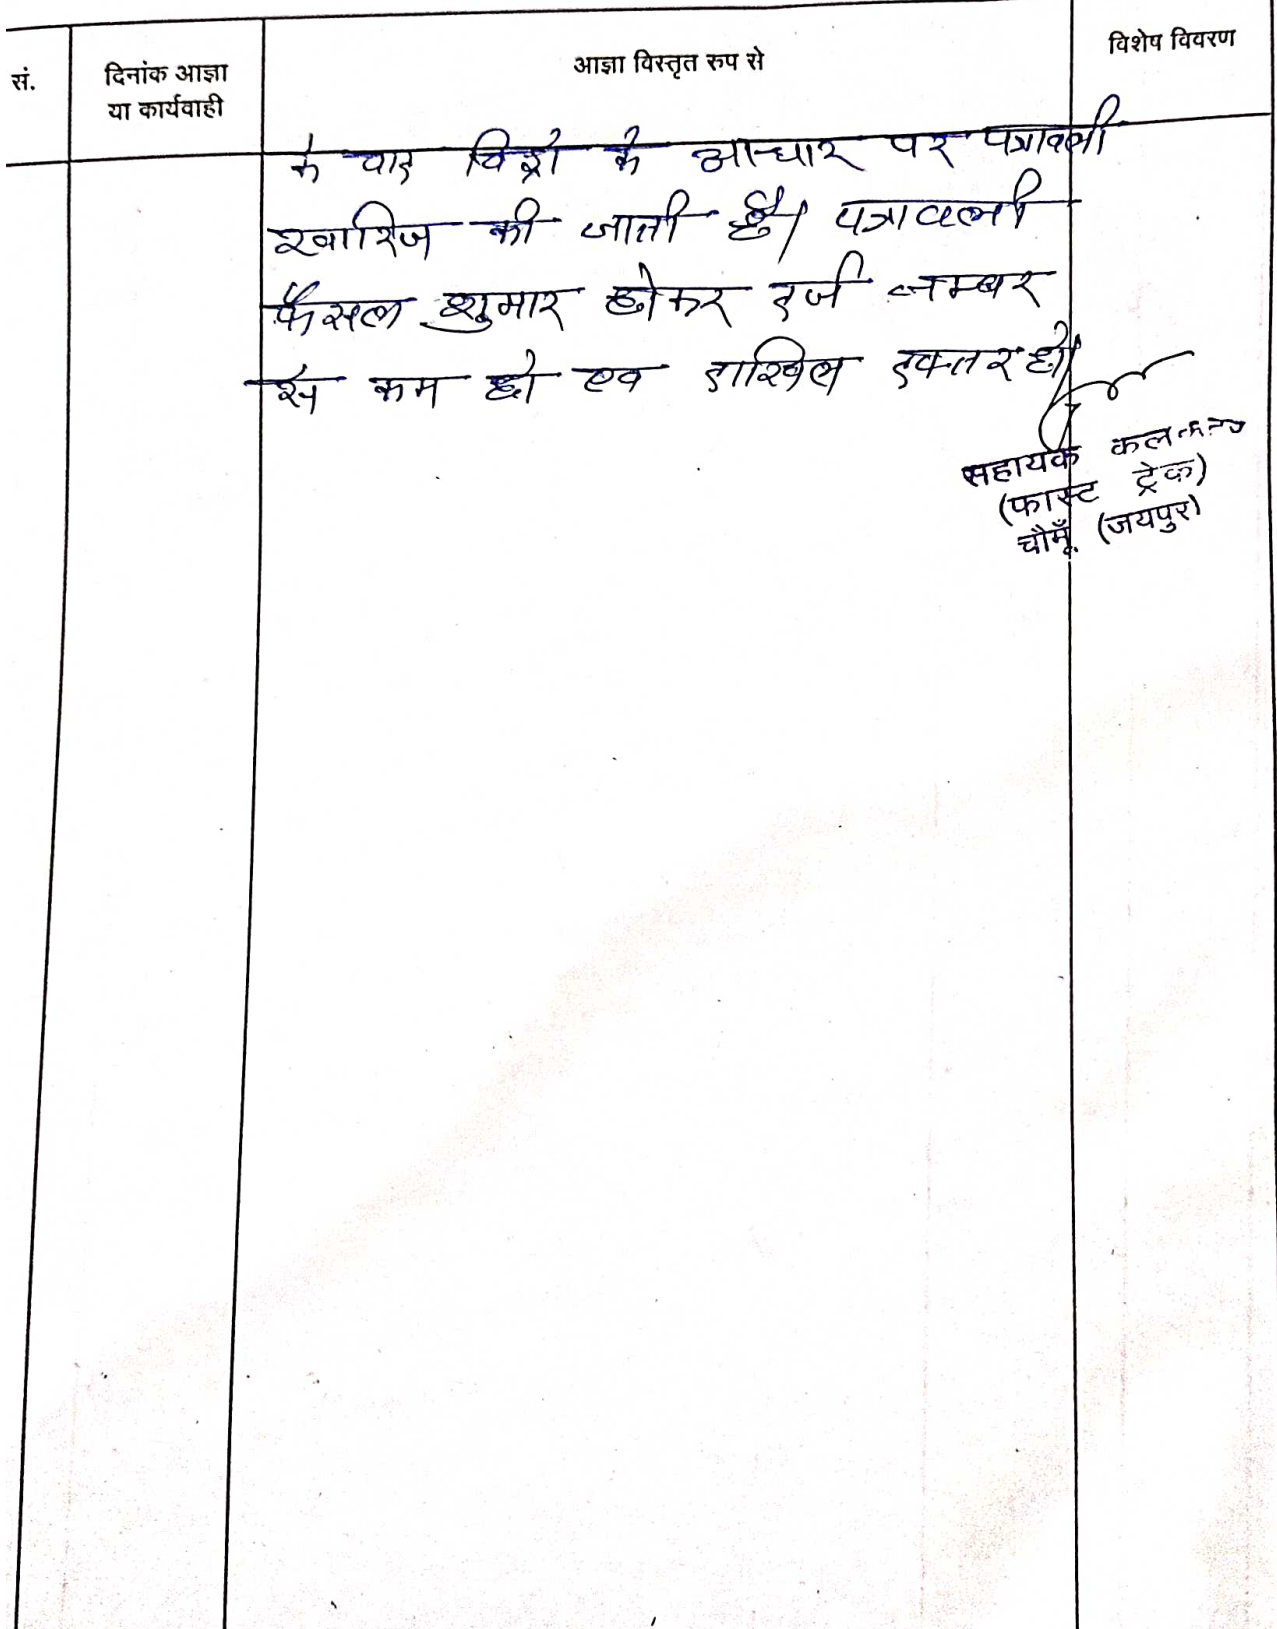 सं.
दिनांक आज्ञा
या कार्यवाही
आज्ञा विस्तृत रुप से
विशेष विवरण
के वाद विड्रो के आधार पर पत्रावली
खारिज की जाती है। पत्रावली
फैसल शुमार होकर दर्ज नम्बर
से कम हो एव दाखिल दफ्तर हो।
सहायक कलक्टर
(फास्ट ट्रेक)
चौमूँ (जयपुर)